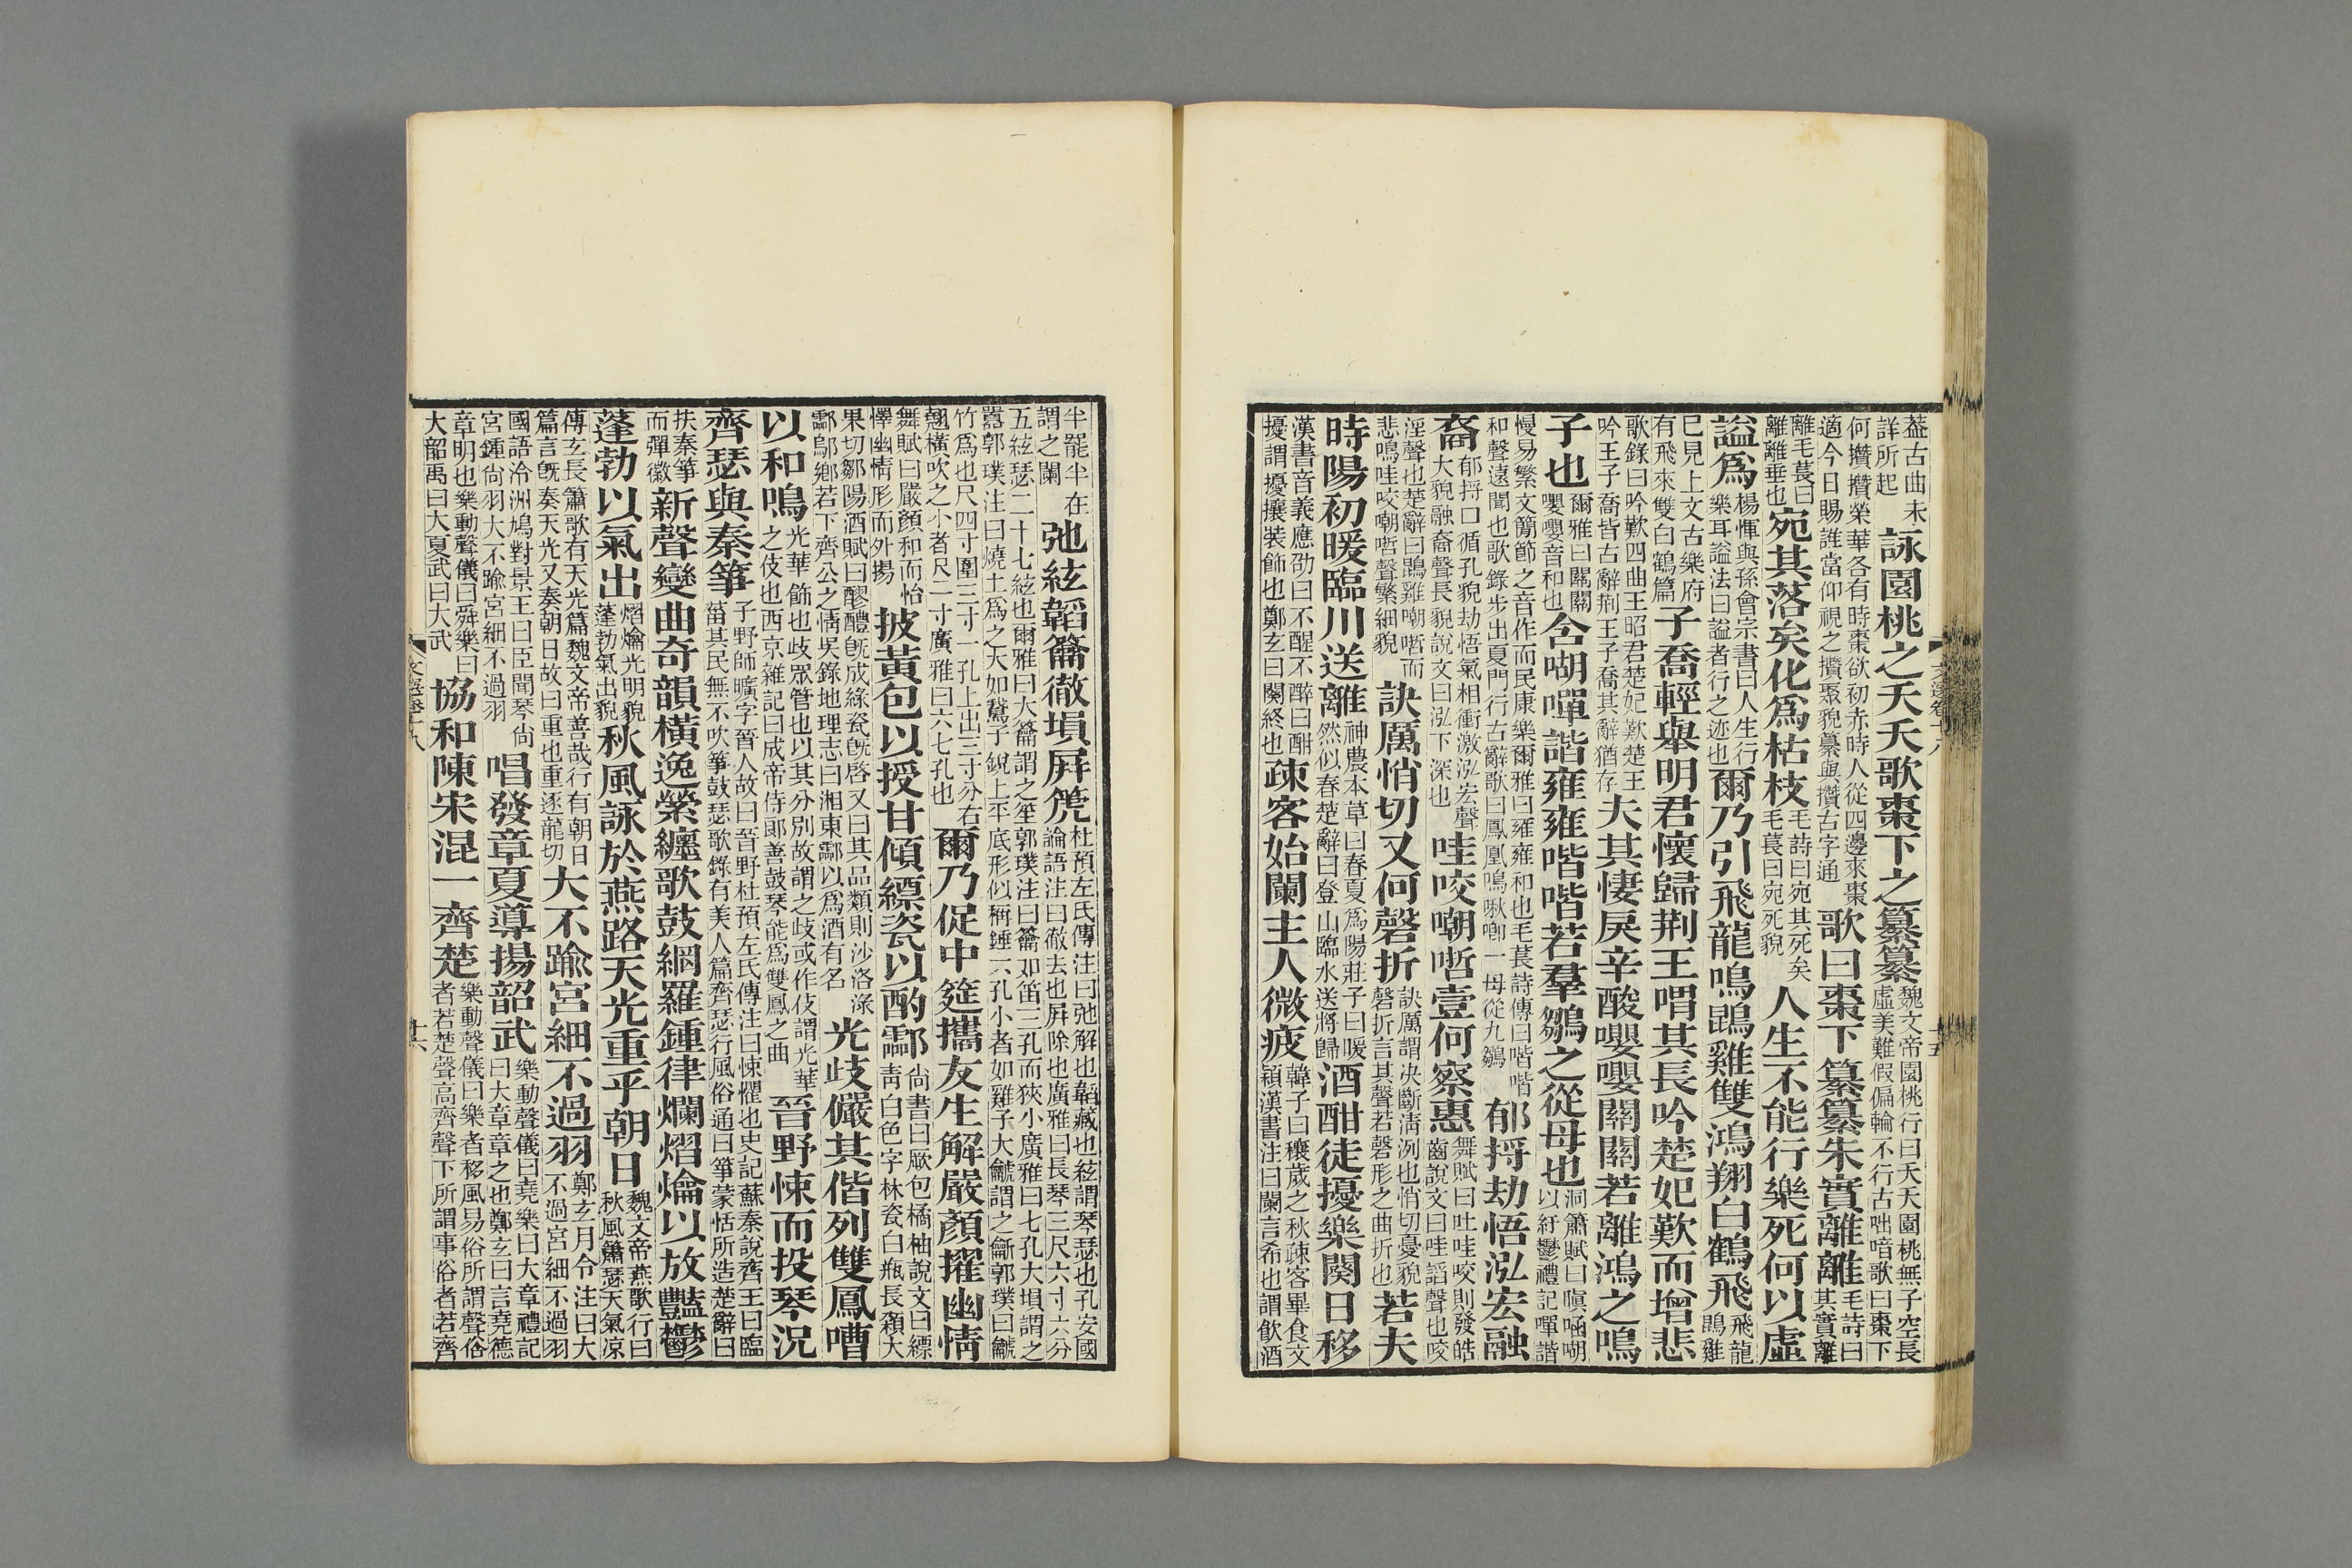 葢古曲未詳所起詠園桃之夭夭歌棗下之纂纂魏文帝園桃行曰夭夭園桃無子空長虛美難假偏輪不行古咄喑歌曰棗下
何攢攢榮華各有時棗欲初赤時人從四邊來棗適今日賜誰當仰視之攢聚貌纂與攢古字通歌曰棗下纂纂朱實離離毛詩曰其實離
離毛萇曰離離垂也宛其落矣化爲枯枝毛詩曰宛其死矣毛萇曰宛死貌人生不能行樂死何以虛
謚爲楊惲與孫會宗書曰人生行樂耳謚法曰謚者行之迹也爾乃引飛龍鳴鵾雞雙鴻翔白鶴飛飛龍鵾雞
已見上文古樂府有飛來雙白鶴篇子喬輕舉明君懷歸荆王喟其長吟楚妃歎而增悲
歌錄曰吟歎四曲王昭君楚妃歎楚王吟王子喬皆古辭荆王子喬其辭猶存夫其悽戾辛酸嚶嚶關關若離鴻之鳴
子也爾雅曰關關嚶嚶音和也含㗅嘽諧雍雍喈喈若羣鶵之從母也洞簫賦曰嗔㖤㗅以紆鬱禮記嘽諧
慢易繁文簡節之音作而民康樂爾雅曰雍雍和也毛萇詩傳曰喈喈和聲遠聞也歌錄步出夏門行古辭歌曰鳳凰鳴啾啾一母從九鶵郁捋劫悟泓宏融
裔郁捋口循孔貌劫悟氣相衝激泓宏聲大貌融裔聲長貌說文曰泓下深也哇咬嘲哳壹何察惠舞賦曰吐哇咬則發皓齒說文曰哇謟聲也咬
淫聲也楚辭曰鵾雞嘲哳而悲鳴哇咬嘲哳聲繁細貌訣厲悄切又何磬折訣厲謂决斷淸冽也悄切憂貌磬折言其聲若磬形之曲折也若夫
時陽初暖臨川送離神農本草曰春夏爲陽莊子曰暖然似春楚辭曰登山臨水送將歸酒酣徒擾樂闋日移
漢書音義應劭曰不醒不醉曰酣擾謂擾攘裝飾也鄭玄曰闋終也疎客始闌主人微疲韓子曰穰歲之秋疎客畢食文穎漢書注曰闌言希也謂飮酒
文選卷十八
十五
半罷半在謂之闌弛絃韜籥徹塤屛箎杜預左氏傳注曰弛解也韜藏也絃謂琴瑟也孔安國論語注曰徹去也屛除也廣雅曰長琴三尺六寸六分
五絃瑟二十七絃也爾雅曰大籥謂之笙郭璞注曰籥如笛三孔而狹小廣雅曰七孔大塤謂之嚻郭璞注曰燒土爲之大如鵞子銳上平底形似稱錘六孔小者如雞子大箎謂之䶵郭璞曰箎
竹爲也尺四寸圍三寸一孔上出三寸分右翹橫吹之小者尺二寸廣雅曰六七孔也爾乃促中筵攜友生解嚴顏擢幽情
舞賦曰嚴顏和而怡懌幽情形而外揚披黃包以授甘傾縹瓷以酌酃尙書曰厥包橘柚說文曰縹靑白色字林瓷白瓶長頸大
果切鄒陽酒賦曰醪醴旣成綠瓷旣啓又曰其品類則沙洛淥酃烏鄕若下齊公之淸吳錄地理志曰湘東酃以爲酒有名光歧儼其偕列雙鳳嘈
以和鳴光華飾也歧眾管也以其分別故謂之歧或作伎謂光華之伎也西京雜記曰成帝侍郞善鼓琴能爲雙鳳之曲晉野悚而投琴況
齊瑟與秦箏子野師曠字晉人故曰晉野杜預左氏傳注曰悚懼也史記蘇秦說齊王曰臨菑其民無不吹箏鼓瑟歌錄有美人篇齊瑟行風俗通曰箏蒙恬所造楚辭曰
扶秦箏而彈徽新聲變曲奇韻橫逸縈纏歌鼓網羅鍾律爛熠爚以放豔鬱
蓬勃以氣出熠爚光明貌蓬勃氣出貌秋風詠於燕路天光重乎朝日魏文帝燕歌行曰秋風簫瑟天氣凉
傅玄長簫歌有天光篇魏文帝善哉行有朝日篇言旣奏天光又奏朝日故曰重也重逐龍切大不踰宮細不過羽鄭玄月令注曰大不過宮細不過羽
國語泠洲鳩對景王曰臣聞琴尙宮鍾尙羽大不踰宮細不過羽唱發章夏導揚韶武樂動聲儀曰堯樂曰大章禮記曰大章章之也鄭玄曰言堯德
章明也樂動聲儀曰舜樂曰大韶禹曰大夏武曰大武協和陳宋混一齊楚樂動聲儀曰樂者移風易俗所謂聲俗者若楚聲高齊聲下所謂事俗者若齊
文選卷十八
十六